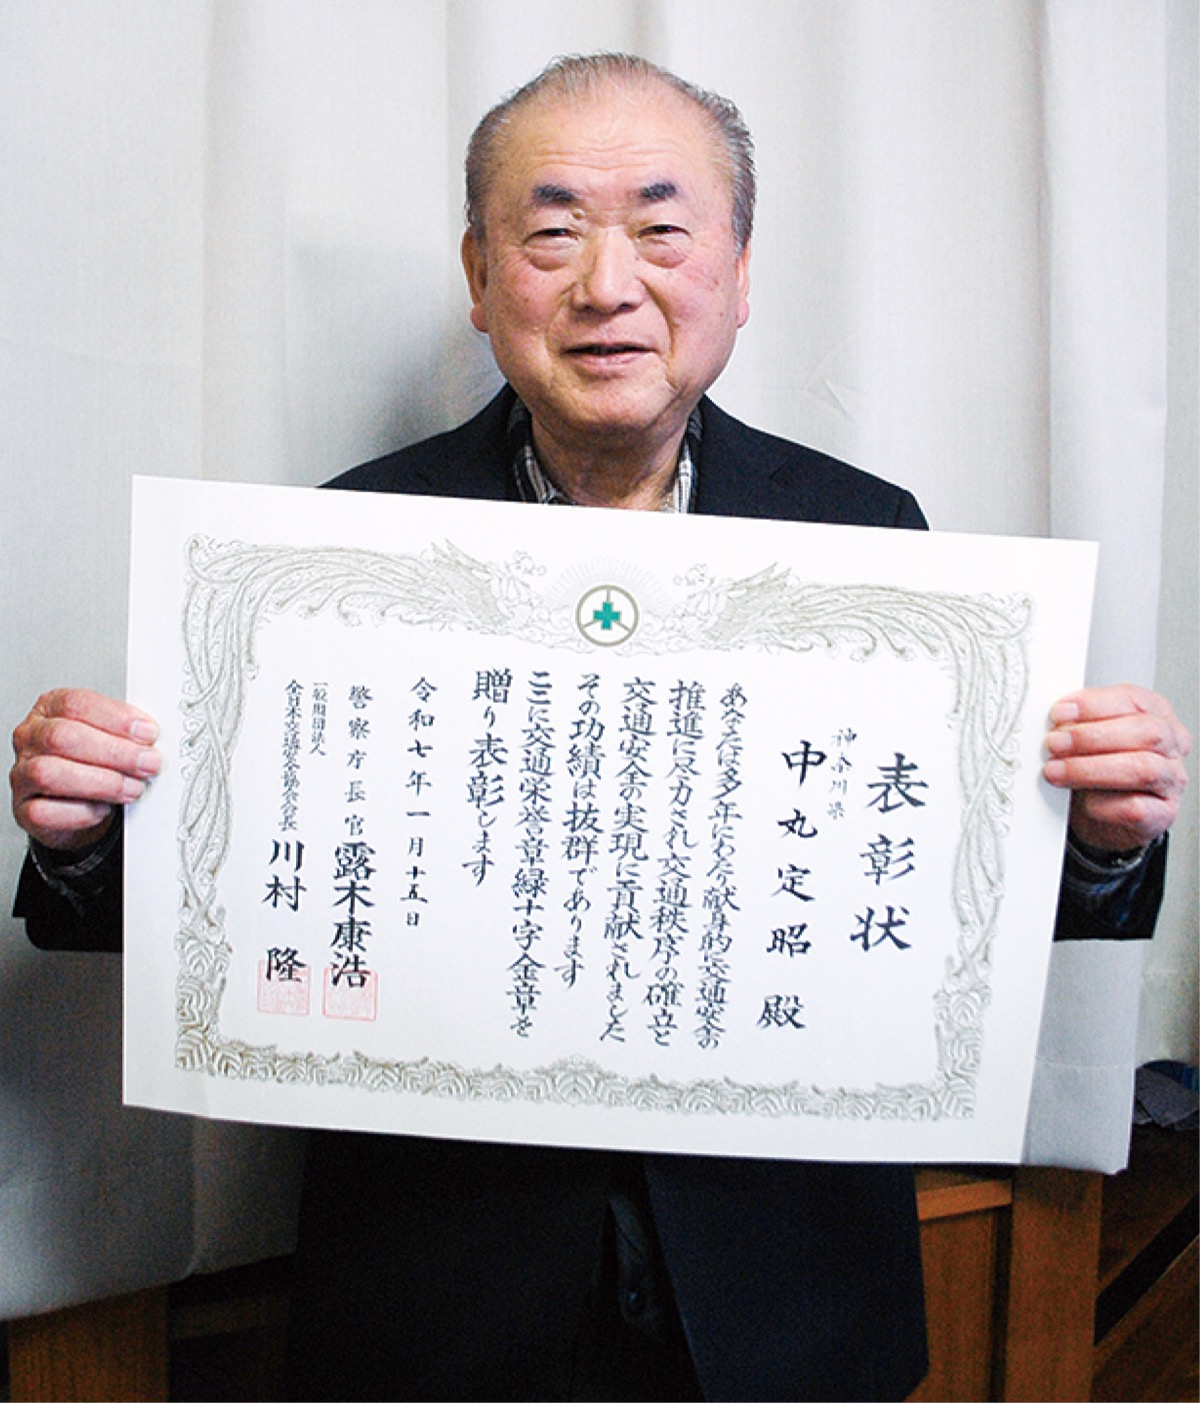 表彰状
神奈川県
中丸定昭 殿
あなたは多年にわたり献身的に交通安全の
推進に尽力され交通秩序の確立と
交通安全の実現に貢献されました
その功績は抜群であります
ここに交通栄誉章緑十字金章を
贈り表彰します
令和七年一月十五日
警察庁長官 露木康浩
一般財団法人
全日本交通安全協会会長 川村 隆